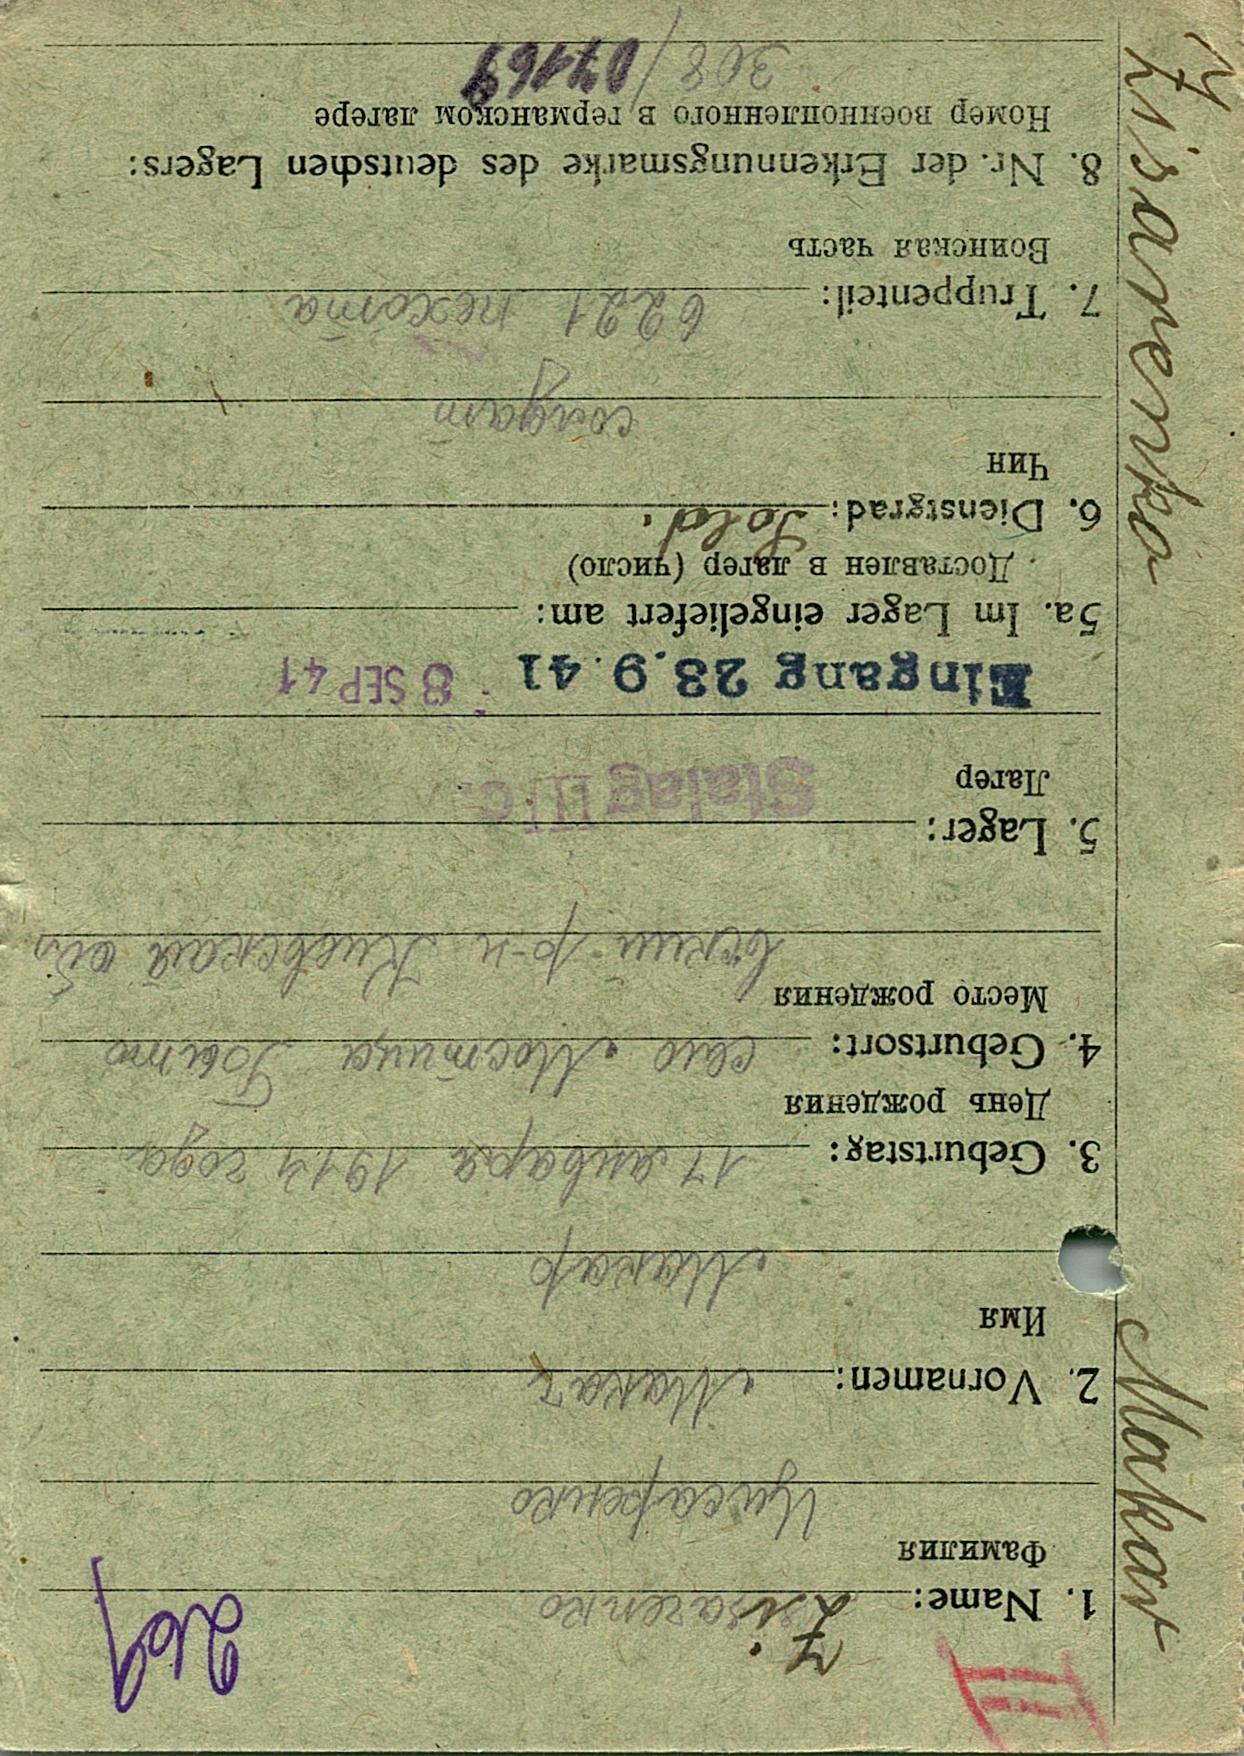 III
269
Zisarenko Makar
1. Name: Zisarenko
Фамилия
Цисаренко
2. Vornamen: Макаr
Имя
Макар
3. Geburtstag: 17 января 1914 года
День рождения
4. Geburtsort: село Мостица
Место рождения
вский р-н Киевской обл
5. Lager:
Лагер
Stalag III C.
Eingang 23.9.41 8 SEP 41
5a. Im Lager eingeliefert am:
Доставлен в лагер (число)
6. Dienstgrad: Sold.
Чин
солдат
7. Truppenteil: 6221 пехота
Воинская часть
8. Nr. der Erkennungsmarke des deutschen Lagers:
Номер военнопленного в германском лагере
308/07169